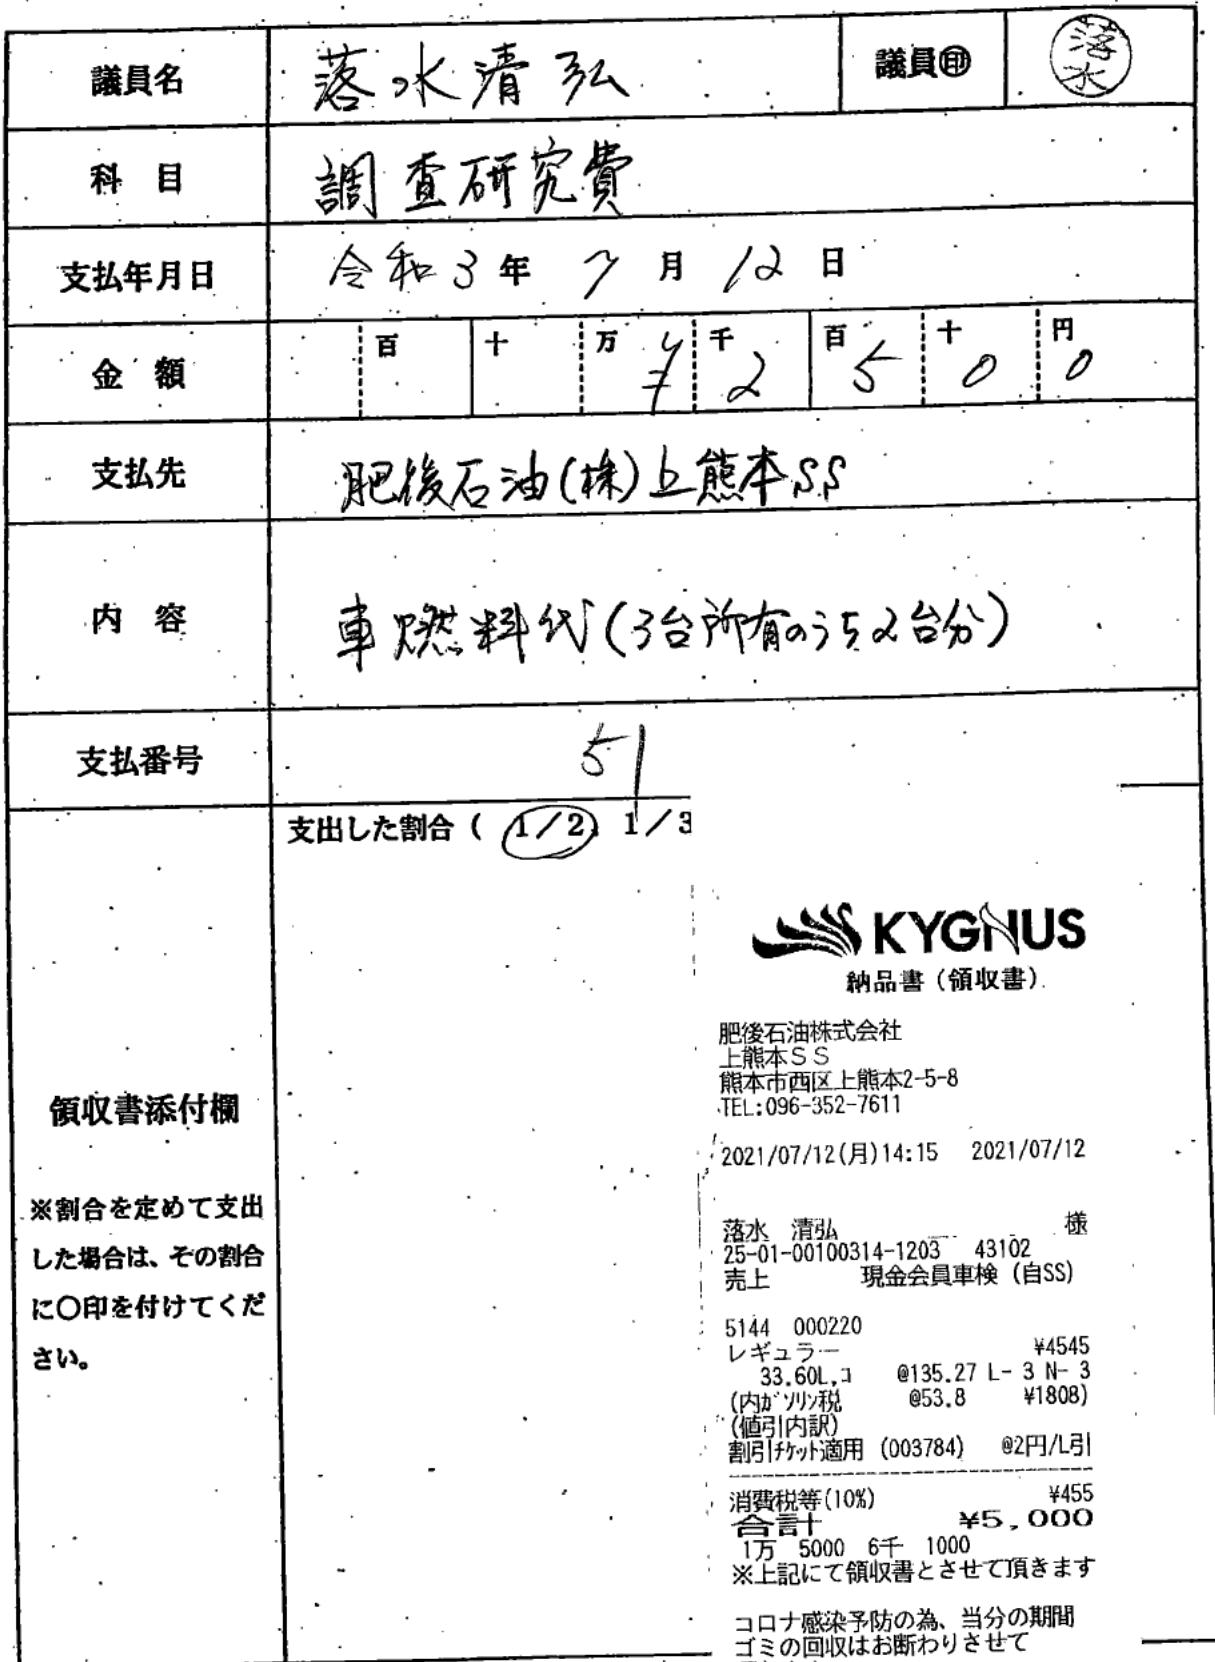 議員名 落水清弘 議員㊞ 落水
科目 調査研究費
支払年月日 令和3年 7月 12日
金額 百 十 万 ¥ 千 2 百 5 十 0 円 0
支払先 肥後石油(株)上熊本SS
内容 車燃料代(3台所有のうち2台分)
支払番号 51
支出した割合 ( 1/2) 1/3
領収書添付欄
※割合を定めて支出
した場合は、その割合
に〇印を付けてくだ
さい。
KYGNUS
納品書(領収書)
肥後石油株式会社
上熊本SS
熊本市西区上熊本2-5-8
TEL:096-352-7611
2021/07/12(月)14:15 2021/07/12
落水 清弘 様
25-01-00100314-1203 43102
売上 現金会員車検(自SS)
5144 000220
レギュラー ¥4545
33.60L,コ @135.27 L- 3 N- 3
(内ガソリン税 @53.8 ¥1808)
(値引内訳)
割引チケット適用 (003784) @2円/L引
消費税等(10%) ¥455
合計 ¥5,000
1万 5000 6千 1000
※上記にて領収書とさせて頂きます
コロナ感染予防の為、当分の期間
ゴミの回収はお断わりさせて